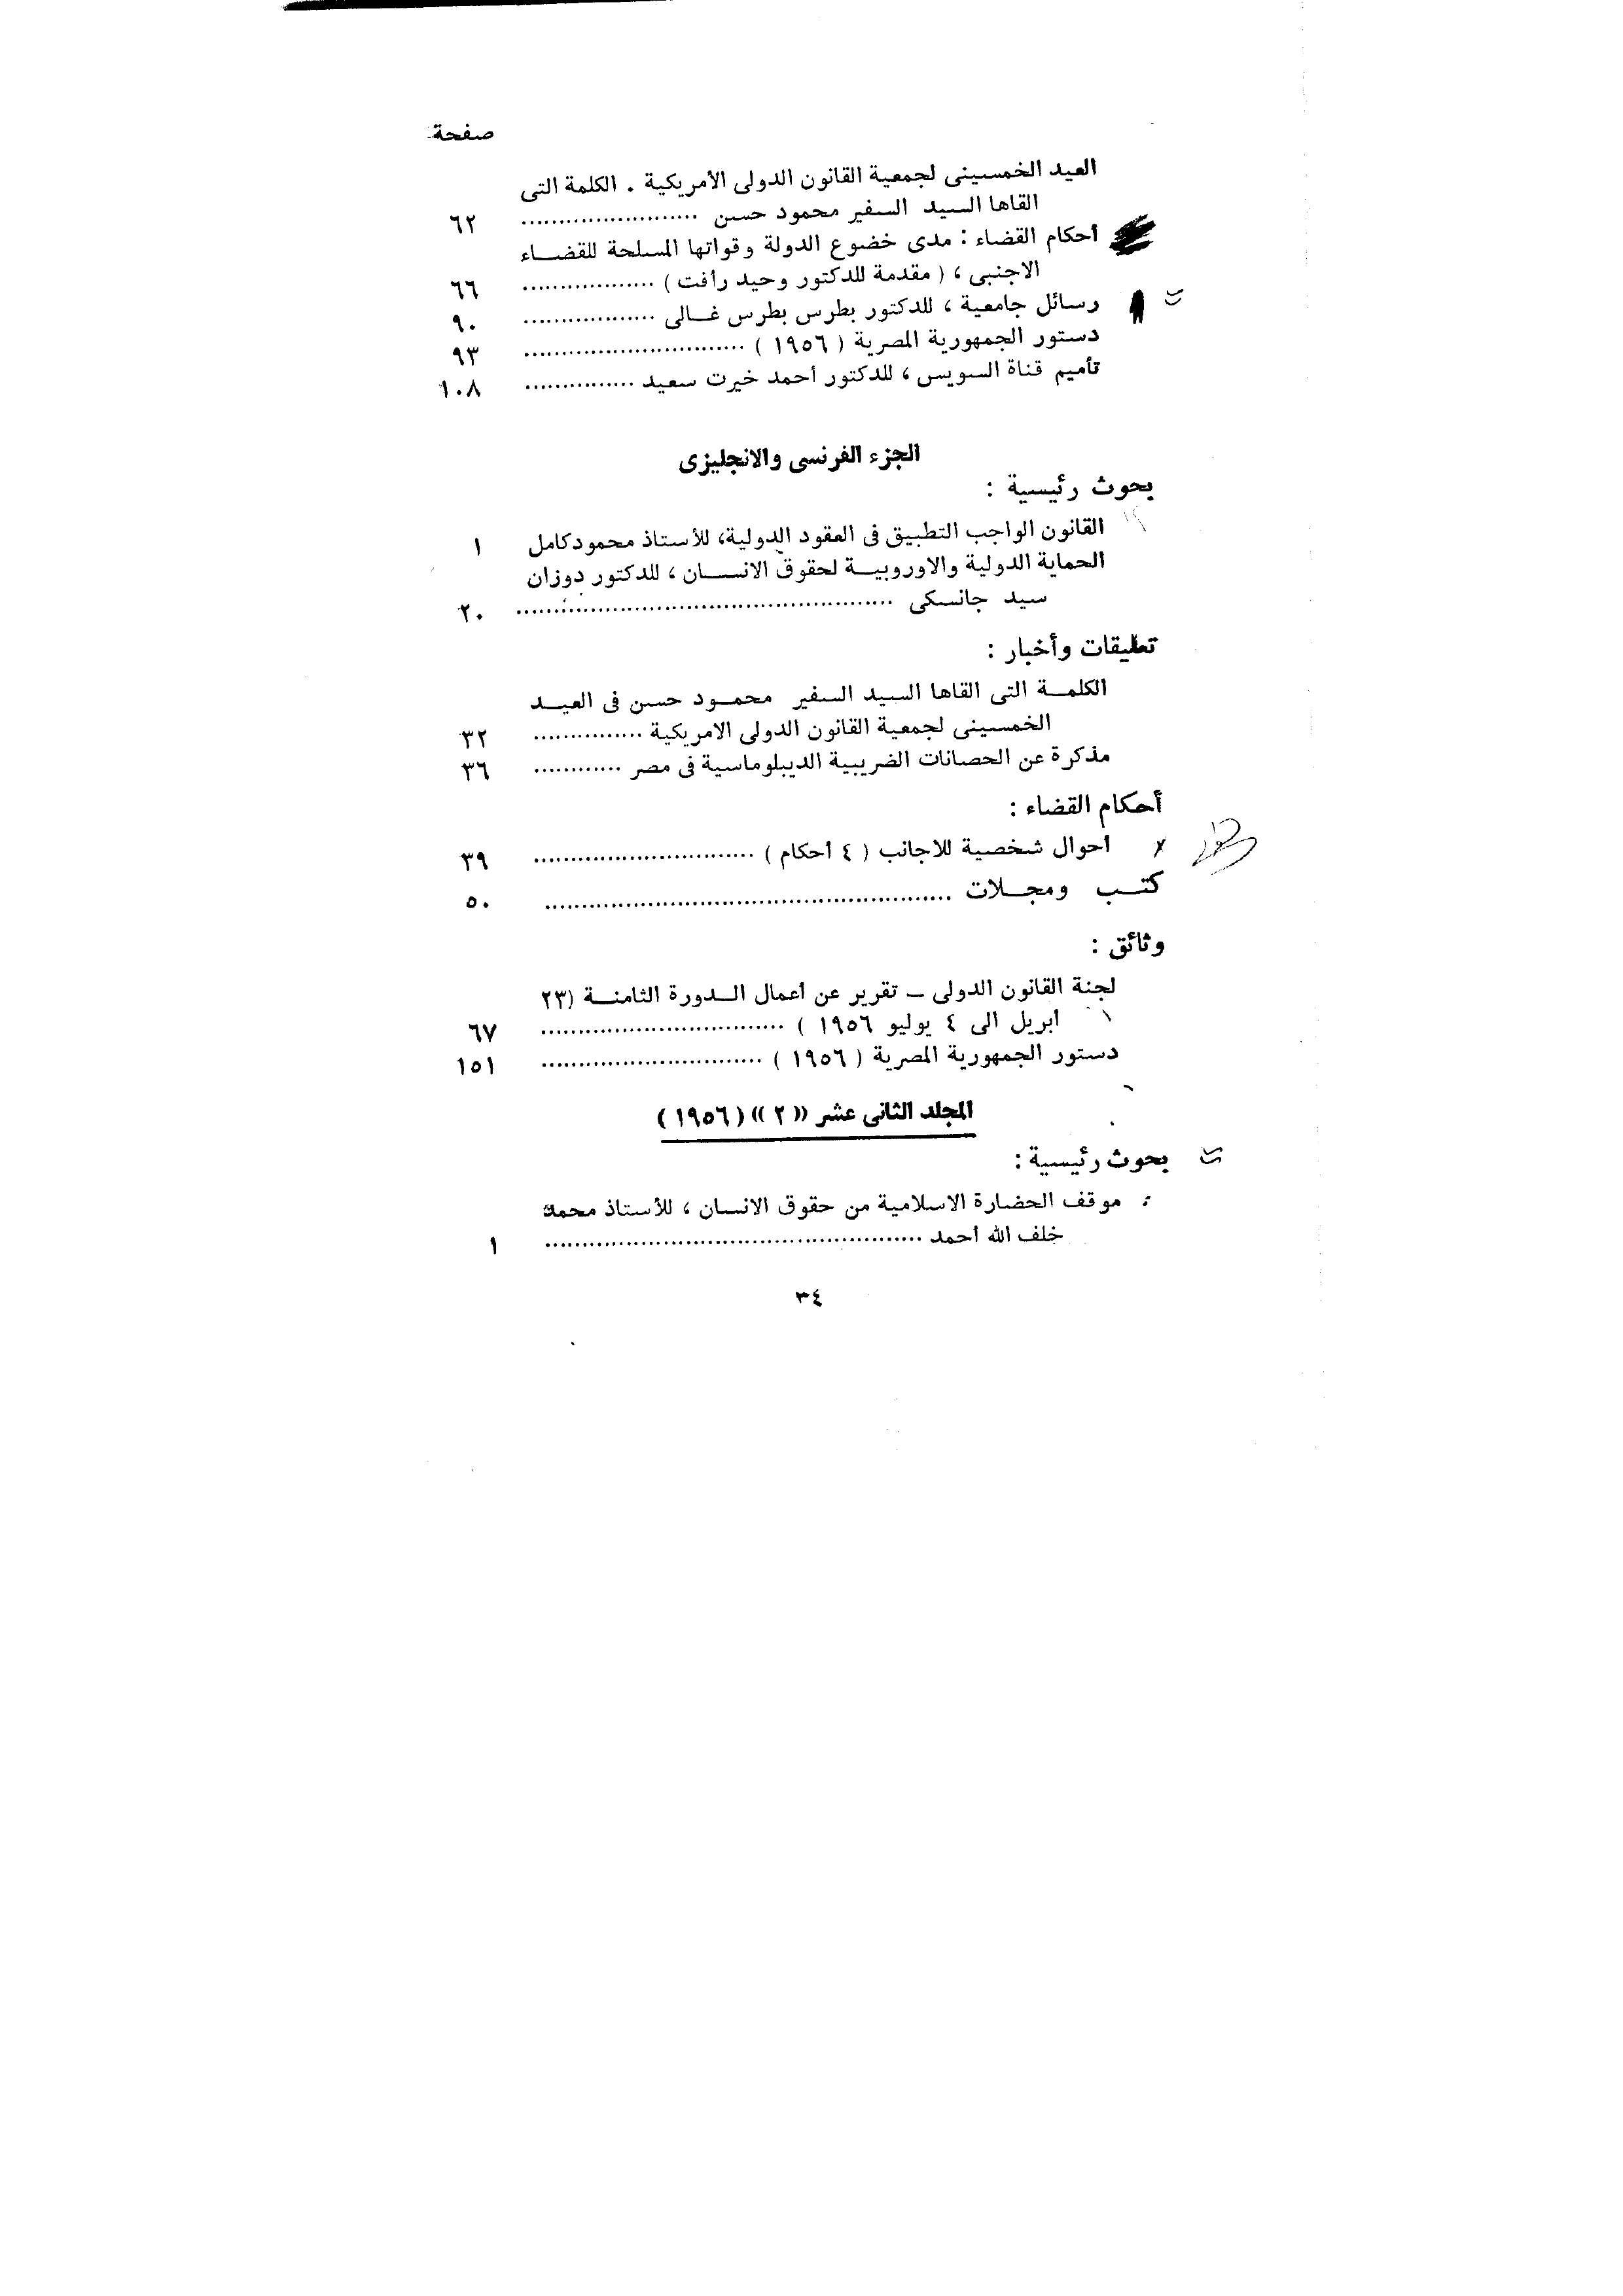 صفحة
العيد الخمسينى لجمعية القانون الدولى الأمريكية . الكلمة التى
القاها السيد السفير محمود حسن ........................ ٦٢
أحكام القضاء : مدى خضوع الدولة وقواتها المسلحة للقضاء
الاجنبى ، ( مقدمة للدكتور وحيد رأفت ) .................. ٦٦
رسائل جامعية ، للدكتور بطرس بطرس غالى .................. ٩٠
دستور الجمهورية المصرية ( ١٩٥٦ ) .............................. ٩٣
تأميم قناة السويس ، للدكتور أحمد خيرت سعيد ............... ١٠٨
الجزء الفرنسى والانجليزى
بحوث رئيسية :
القانون الواجب التطبيق فى العقود الدولية، للأستاذ محمود كامل ١
الحماية الدولية والاوروبية لحقوق الانسان ، للدكتور دوزان
سيد جانسكى .................................................... ٢٠
تعليقات وأخبار :
الكلمة التى القاها السيد السفير محمود حسن فى العيد
الخمسينى لجمعية القانون الدولى الامريكية ............... ٣٢
مذكرة عن الحصانات الضريبية الديبلوماسية فى مصر ............ ٣٦
أحكام القضاء :
أحوال شخصية للاجانب ( ٤ أحكام ) .............................. ٣٩
كتب ومجلات ........................................................ ٥٠
وثائق :
لجنة القانون الدولى ــ تقرير عن أعمال الدورة الثامنة (٢٣
أبريل الى ٤ يوليو ١٩٥٦ ) ................................. ٦٧
دستور الجمهورية المصرية ( ١٩٥٦ ) .............................. ١٥١
المجلد الثانى عشر (( ٢ )) ( ١٩٥٦ )
بحوث رئيسية :
موقف الحضارة الاسلامية من حقوق الانسان ، للأستاذ محمد
خلف الله أحمد .................................................... ١
٣٤